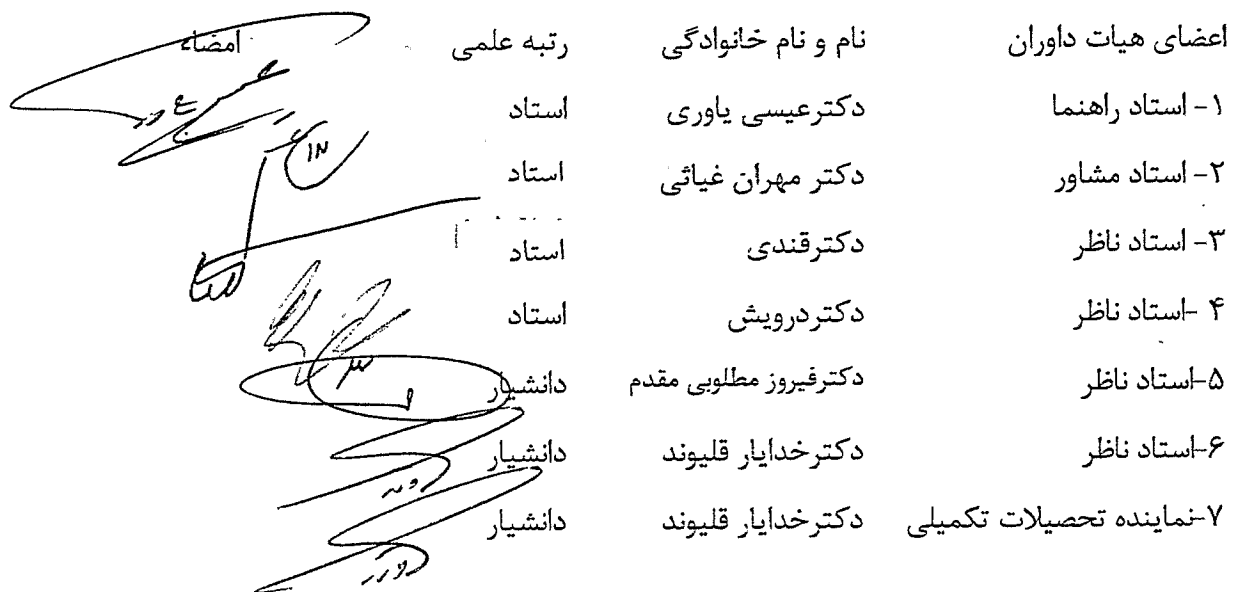 اعضای هیات داوران نام و نام خانوادگی رتبه علمی امضاء
۱- استاد راهنما دکترعیسی یاوری استاد
۲- استاد مشاور دکتر مهران غیاثی استاد
۳- استاد ناظر دکترقندی استاد
۴ -استاد ناظر دکتردرویش استاد
۵-استاد ناظر دکترفیروز مطلوبی مقدم دانشیار
۶-استاد ناظر دکترخدایار قلیوند دانشیار
۷-نماینده تحصیلات تکمیلی دکترخدایار قلیوند دانشیار